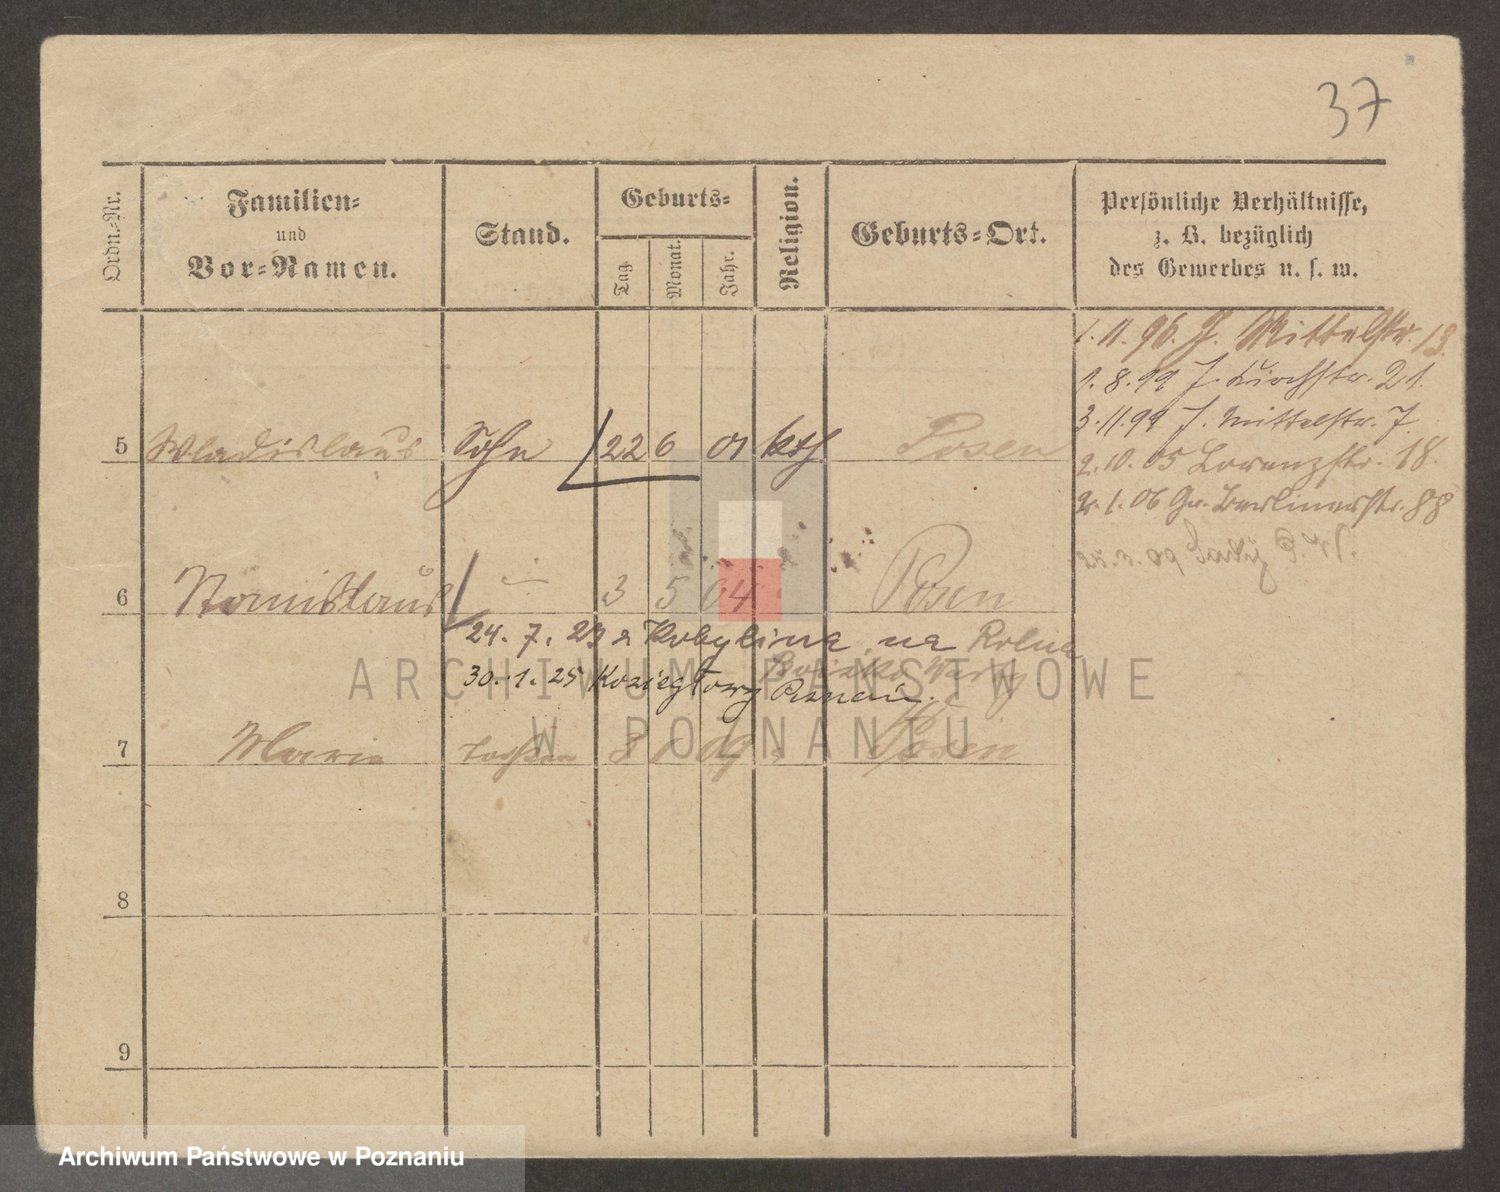 37
Ordn.-Nr.
Familien-
und
Vor-Namen.
Stand.
Geburts-
Tag.
Monat.
Jahr.
Religion.
Geburts-Ort.
Persönliche Verhältnisse,
z. B. bezüglich
des Gewerbes u. s. w.
1. 11. 96. J. Mittelstr. 13.
1. 8. 99 J. Kirchstr. 21.
3. 11. 99 J. Mittelstr. 7
2. 10. 05 Lorenzstr. 18.
2. 1. 06 Gr. Berlinerstr. 88
5 Wladislaus Sohn 22 6 01 kth Posen
6 Stanislaus 3 5 04 Posen
24. 7. 23 z Kobylina na Rolna
30. 1. 25 Koziegłowy Poznań.
7 Maria 8 1 09 Posen
8
9
ARCHIWUM PAŃSTWOWE
W POZNANIU
Archiwum Państwowe w Poznaniu